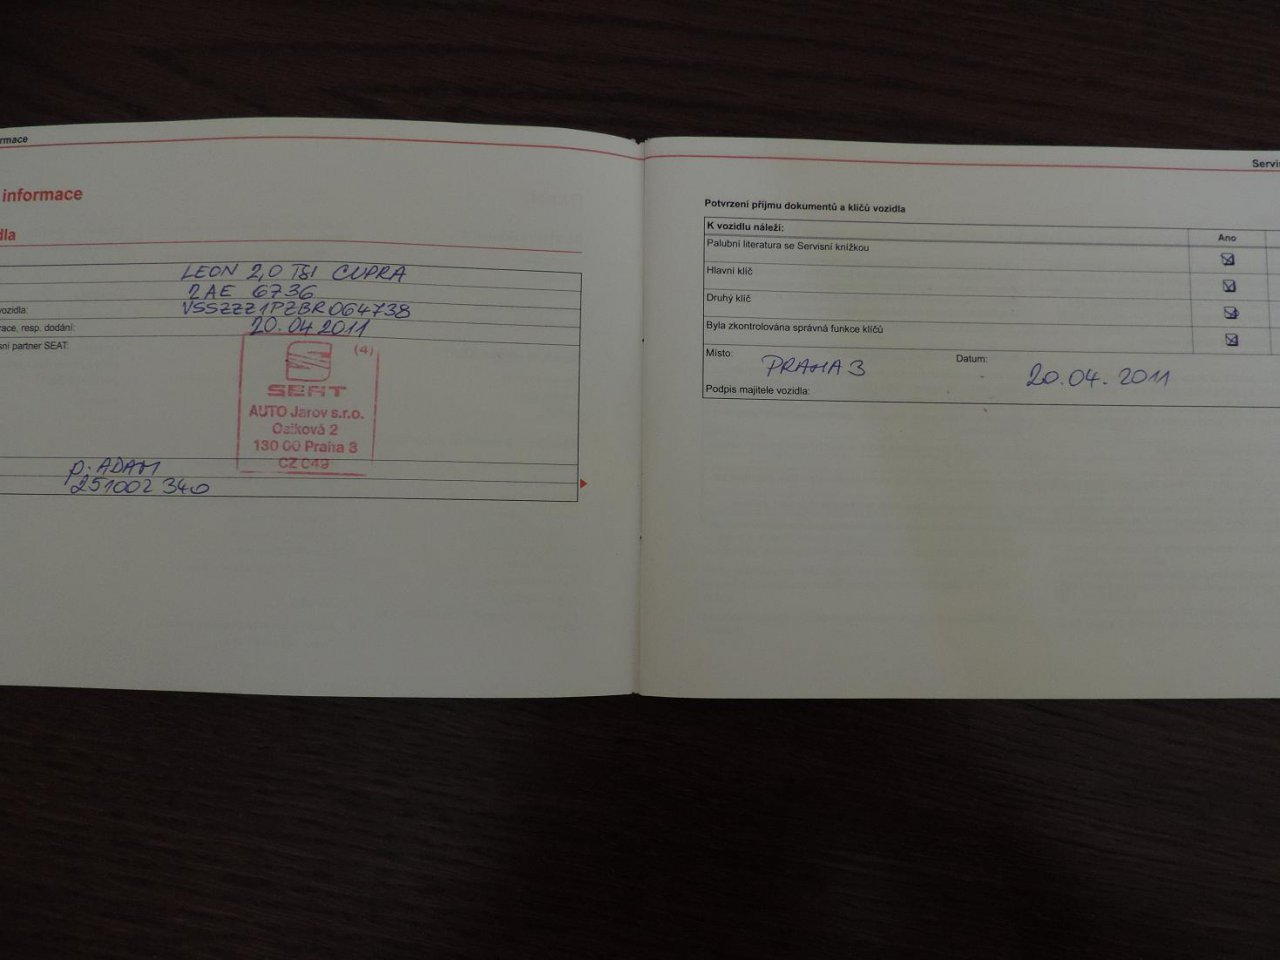 rmace
informace
dla
LEON 2,0 TSI CUPRA
2AE 6736
vozidla: VSSZZZ1PZBR064738
race, resp. dodání: 20.04 2011
sní partner SEAT:
(4)
SEAT
AUTO Jarov s.r.o.
Osiková 2
130 00 Praha 3
CZ C49
p. ADAM
251002 340
Servis
Potvrzení příjmu dokumentů a klíčů vozidla
K vozidlu náleží: Ano
Palubní literatura se Servisní knížkou
Hlavní klíč
Druhý klíč
Byla zkontrolována správná funkce klíčů
Místo: PRAHA 3 Datum: 20.04.2011
Podpis majitele vozidla: